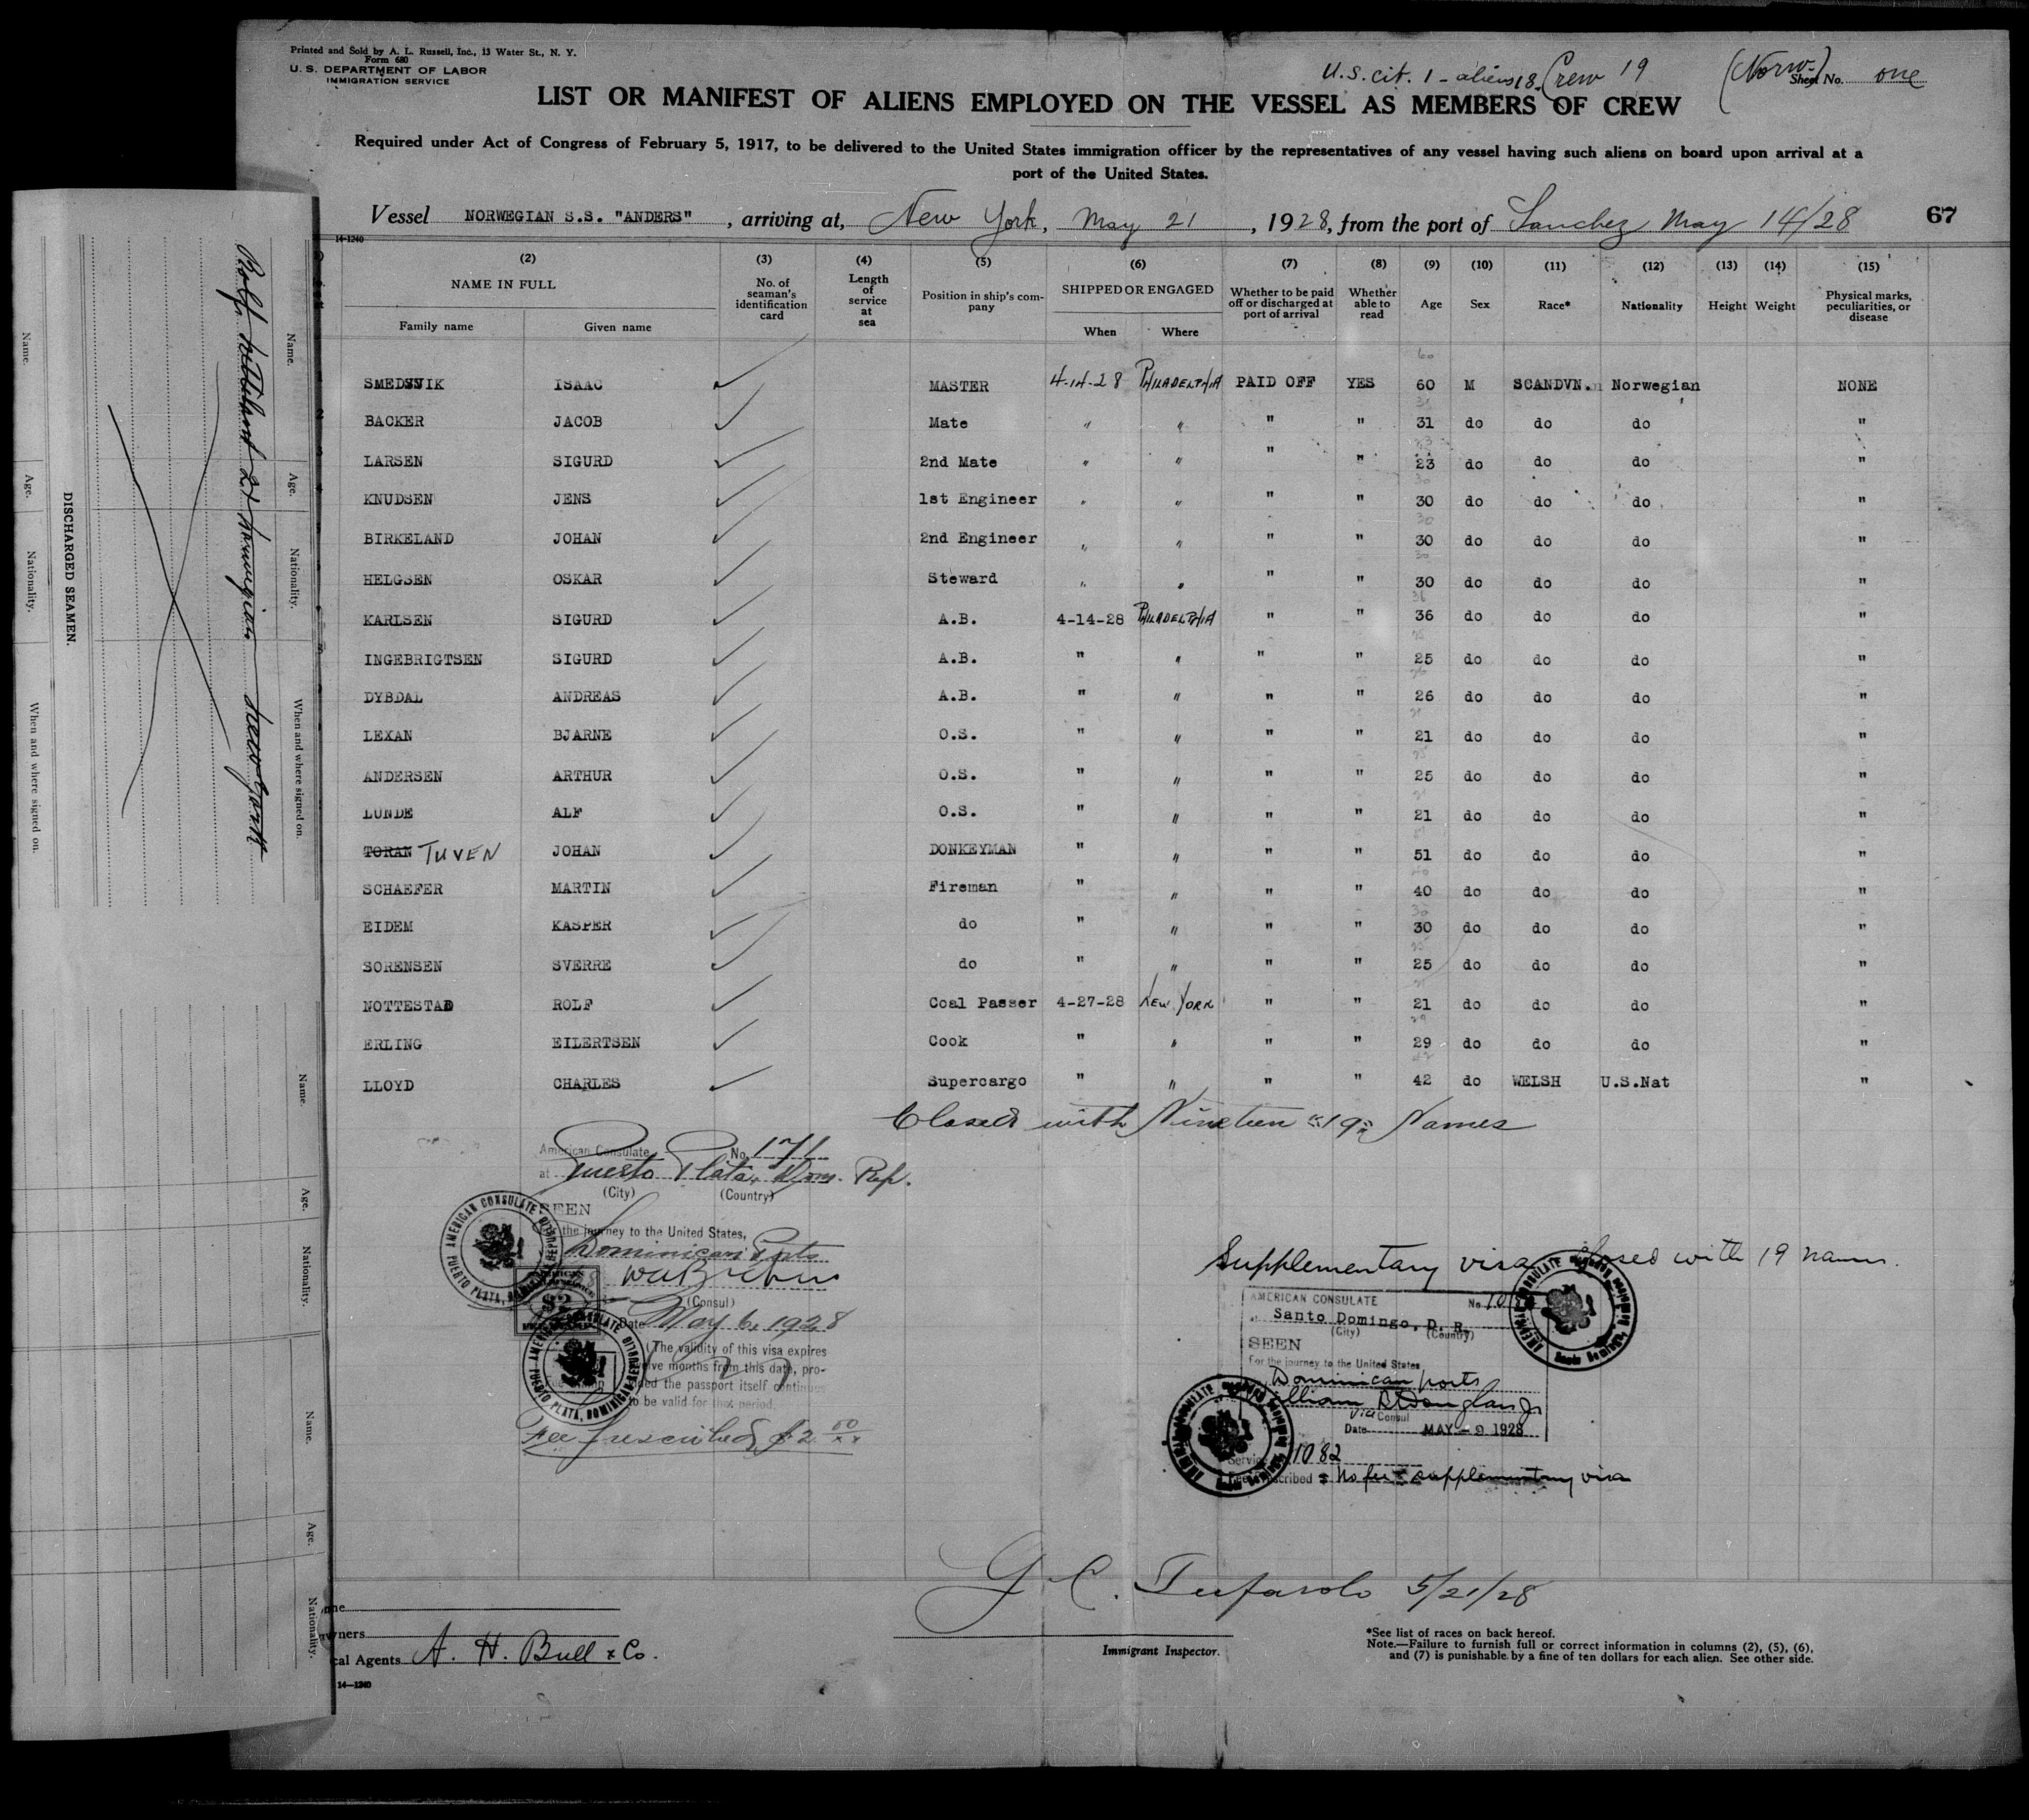 Printed and Sold by A. L. Russell, Inc., 13 Water St., N. Y.
Form 680
U. S. DEPARTMENT OF LABOR
IMMIGRATION SERVICE
U.S. cit. 1 - aliens 18. Crew 19
(Norw.)
Sheet No. one
LIST OR MANIFEST OF ALIENS EMPLOYED ON THE VESSEL AS MEMBERS OF CREW
Required under Act of Congress of February 5, 1917, to be delivered to the United States immigration officer by the representatives of any vessel having such aliens on board upon arrival at a
port of the United States.
Vessel NORWEGIAN S.S. "ANDERS", arriving at, New York, May 21, 1928, from the port of Sanchez May 14/28
67
14-1240
(2) (3) (4) (5) (6) (7) (8) (9) (10) (11) (12) (13) (14) (15)
NAME IN FULL
Family name Given name
No. of seaman's identification card
Length of service at sea
Position in ship's company
SHIPPED OR ENGAGED
When Where
Whether to be paid off or discharged at port of arrival
Whether able to read
Age Sex Race* Nationality Height Weight
Physical marks, peculiarities, or disease
SMEDSVIK ISAAC MASTER 4-14-28 PHILADELPHIA PAID OFF YES 60 M SCANDVN. Norwegian NONE
BACKER JACOB Mate " " " " 31 do do do "
LARSEN SIGURD 2nd Mate " " " " 23 do do do "
KNUDSEN JENS 1st Engineer " " " " 30 do do do "
BIRKELAND JOHAN 2nd Engineer " " " " 30 do do do "
HELGSEN OSKAR Steward " " " " 30 do do do "
KARLSEN SIGURD A.B. 4-14-28 PHILADELPHIA " " 36 do do do "
INGEBRIGTSEN SIGURD A.B. " " " " 25 do do do "
DYBDAL ANDREAS A.B. " " " " 26 do do do "
LEXAN BJARNE O.S. " " " " 21 do do do "
ANDERSEN ARTHUR O.S. " " " " 25 do do do "
LUNDE ALF O.S. " " " " 21 do do do "
TORAN TUVEN JOHAN DONKEYMAN " " " " 51 do do do "
SCHAEFER MARTIN Fireman " " " " 40 do do do "
EIDEM KASPER do " " " " 30 do do do "
SORENSEN SVERRE do " " " " 25 do do do "
NOTTESTAD ROLF Coal Passer 4-27-28 NEW YORK " " 21 do do do "
ERLING EILERTSEN Cook " " " " 29 do do do "
LLOYD CHARLES Supercargo " " " " 42 do WELSH U.S.Nat "
Closed with Nineteen "19" Names
American Consulate No. 171
at Puerto Plata, Dom. Rep.
(City) (Country)
SEEN
the journey to the United States,
Dominican Ports
(Consul)
Date May 6, 1928
(The validity of this visa expires
months from this date, pro-
the passport itself continues
to be valid for that period.
Fee prescribed $2 00/xx
AMERICAN CONSULATE PUERTO PLATA, DOMINICAN REPUBLIC
$2
AMERICAN CONSULATE PUERTO PLATA, DOMINICAN REPUBLIC
Supplementary visa closed with 19 names.
AMERICAN CONSULATE No.
at Santo Domingo, D. R.
(City) (Country)
SEEN
For the journey to the United States
Dominican ports
Vice Consul
Date MAY - 9 1928
Service 1082
No fee supplementary visa
G. C. Tufarolo 5/21/28
Immigrant Inspector.
Local Agents A. H. Bull & Co.
14-1240
*See list of races on back hereof.
Note.—Failure to furnish full or correct information in columns (2), (5), (6),
and (7) is punishable by a fine of ten dollars for each alien. See other side.
DISCHARGED SEAMEN.
Name. Age. Nationality. When and where signed on.
Name. Age. Nationality. When and where signed on.
Rolf 21 Norwegian New York
Name. Age. Nationality.
Name. Age. Nationality.